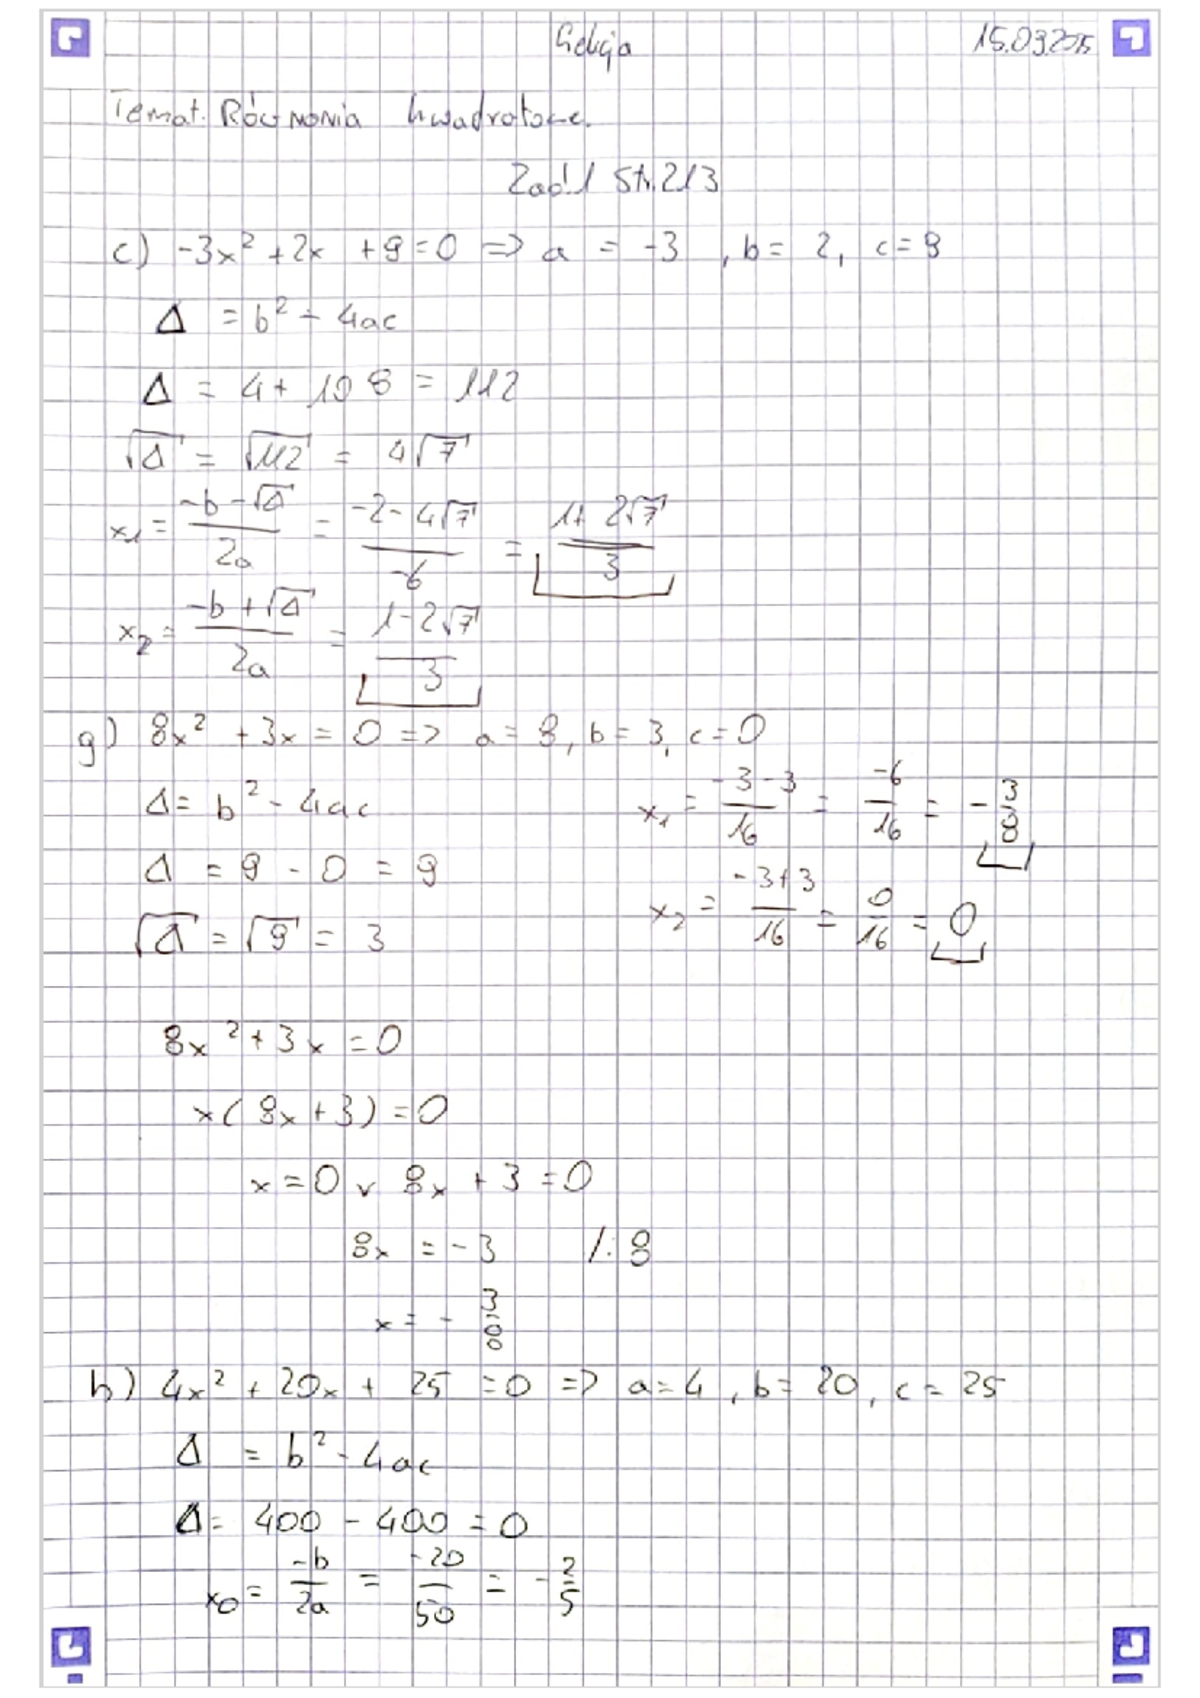 Lekcja 15.03.2015
Temat: Równania kwadratowe.
Zad.1 str.213
c) -3x² + 2x + 9 = 0 => a = -3, b = 2, c = 9
Δ = b² - 4ac
Δ = 4 + 108 = 112
√Δ = √112 = 4√7
x₁ = (-b - √Δ)/2a = (-2 - 4√7)/-6 = (1 + 2√7)/3
x₂ = (-b + √Δ)/2a = (1 - 2√7)/3
g) 8x² + 3x = 0 => a = 8, b = 3, c = 0
Δ = b² - 4ac
x₁ = (-3 - 3)/16 = -6/16 = -3/8
Δ = 9 - 0 = 9
√Δ = √9 = 3
x₂ = (-3 + 3)/16 = 0/16 = 0
8x² + 3x = 0
x(8x + 3) = 0
x = 0 v 8x + 3 = 0
8x = -3 /: 8
x = -3/8
h) 4x² + 20x + 25 = 0 => a = 4, b = 20, c = 25
Δ = b² - 4ac
Δ = 400 - 400 = 0
x₀ = -b/2a = -20/50 = -2/5